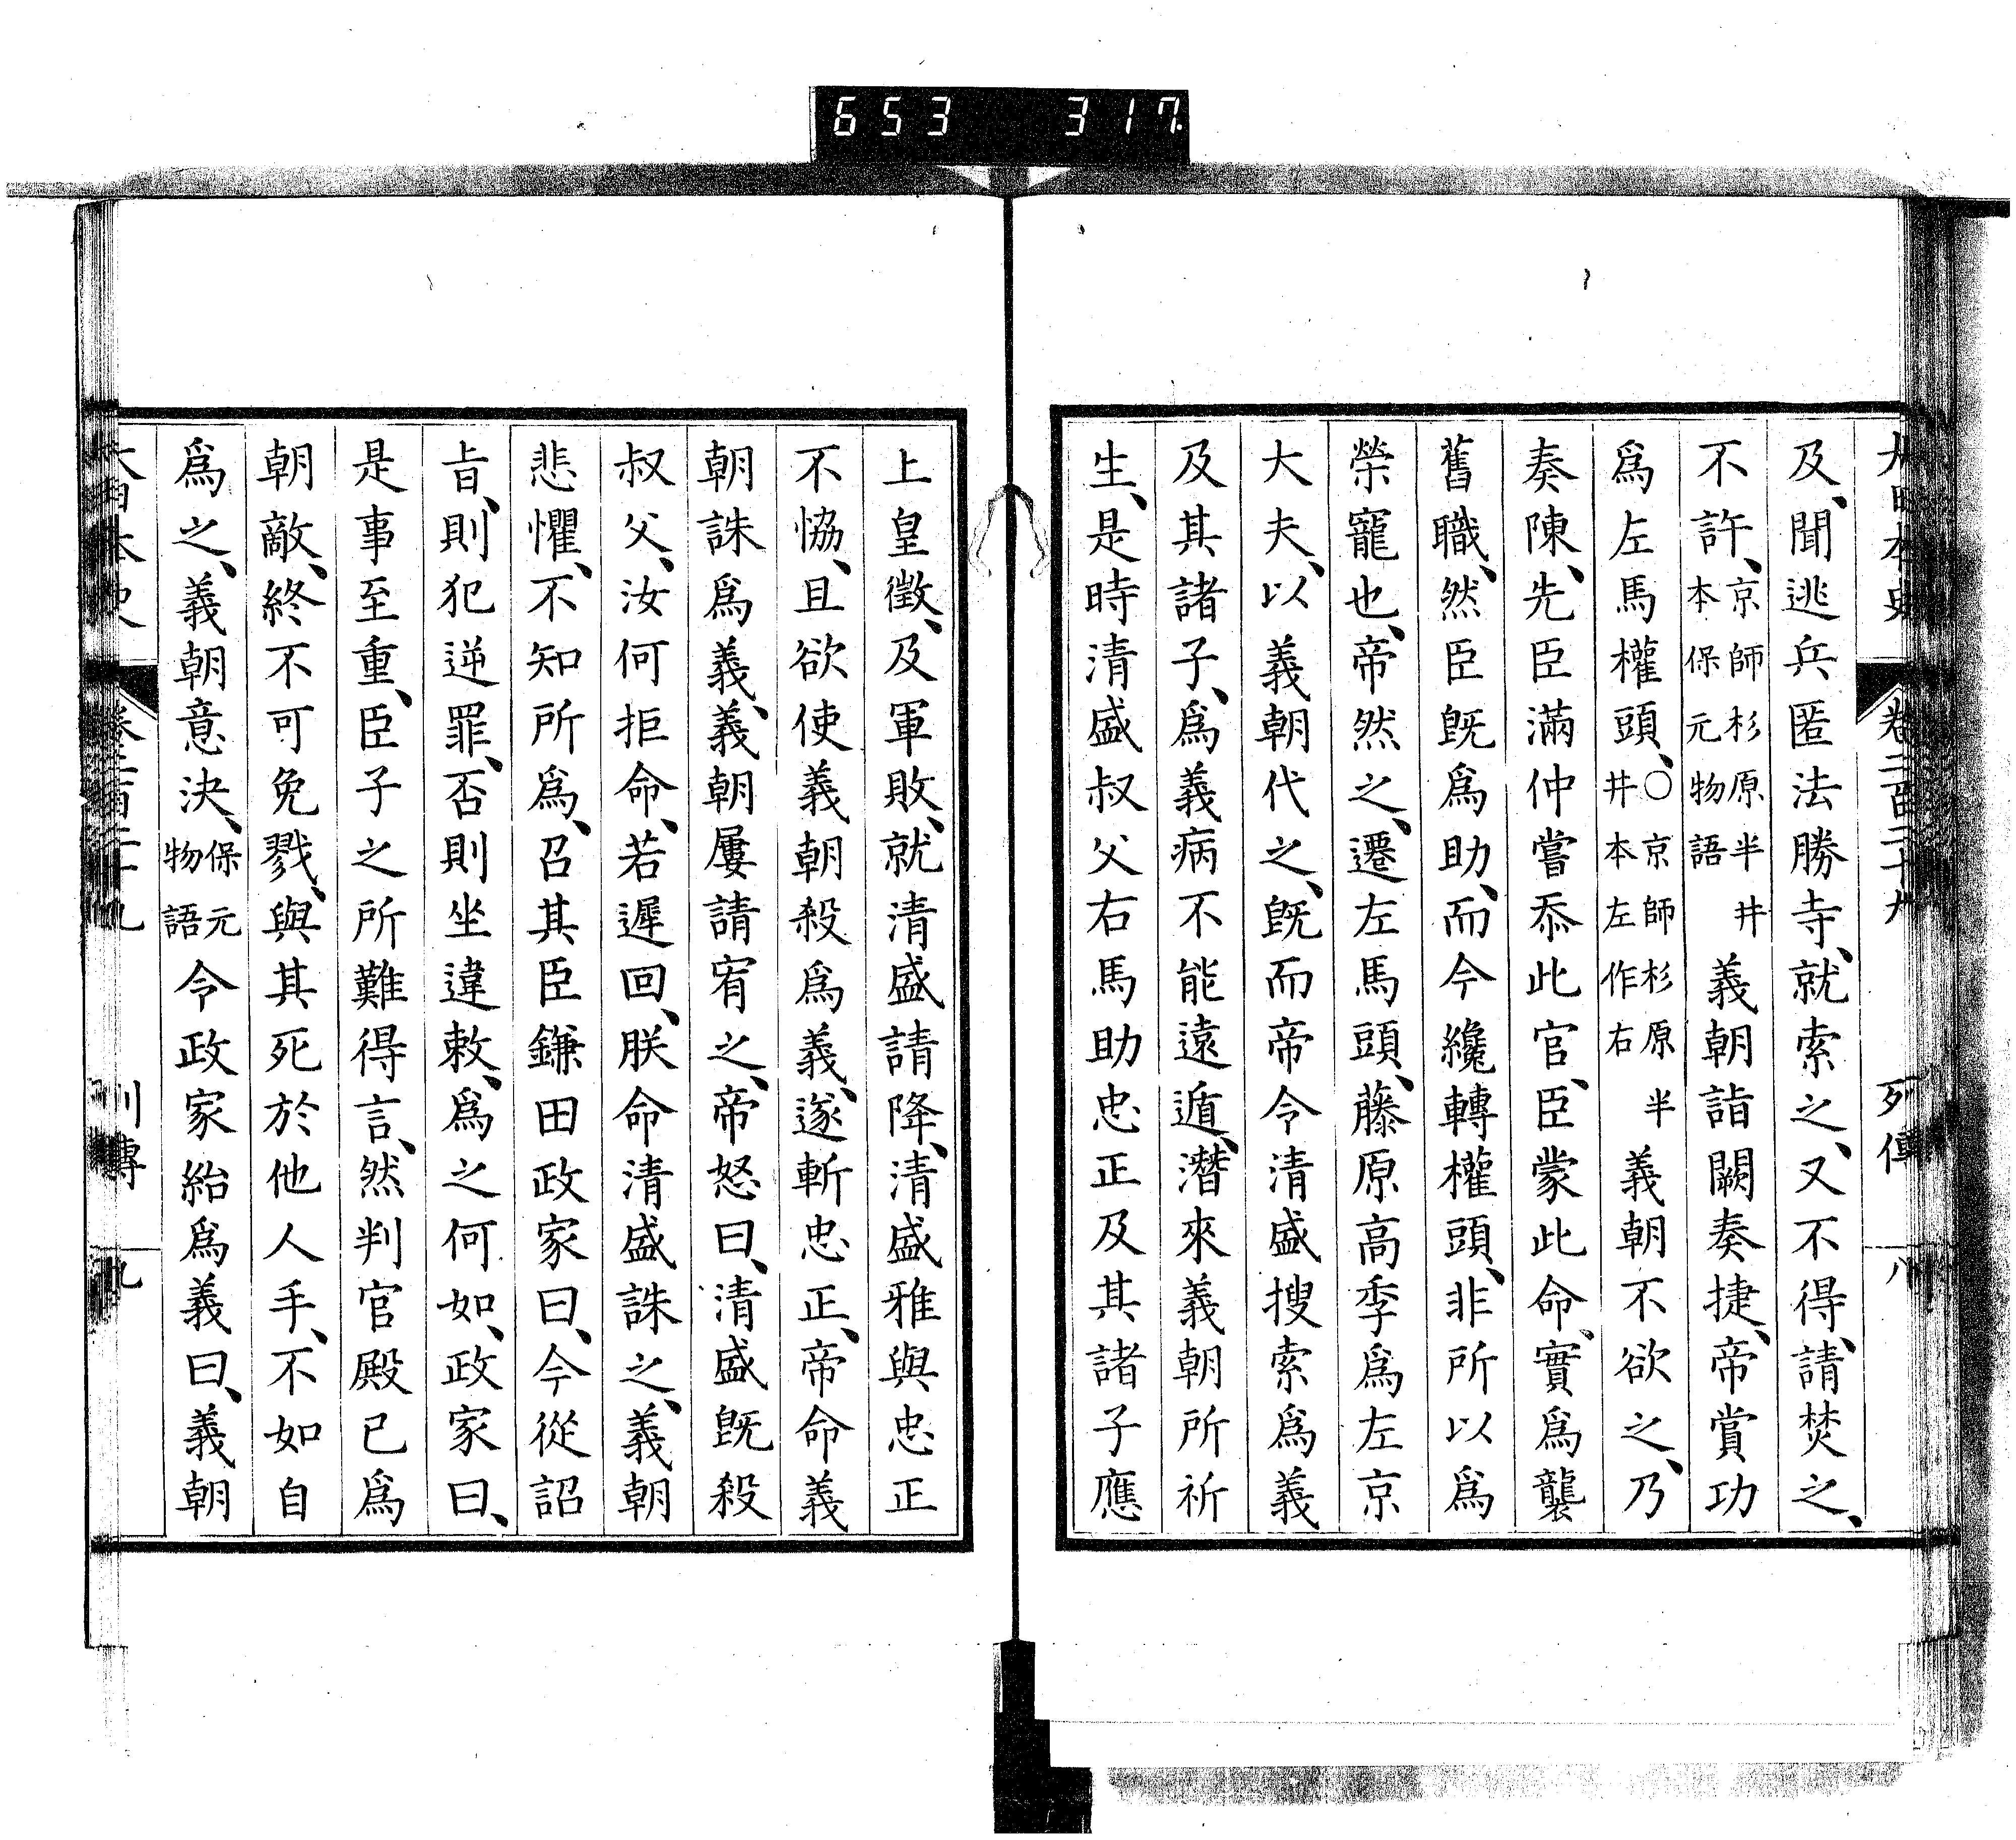 653 317
大日本史 卷二百二十九 列傳 八
及、聞逃兵匿法勝寺、就索之、又不得、請焚之、
不許、京師杉原半井本保元物語義朝詣闕奏捷、帝賞功
爲左馬權頭、○京師杉原半井本左作右義朝不欲之、乃
奏陳、先臣滿仲嘗忝此官、臣蒙此命、實爲襲
舊職、然臣既爲助、而今纔轉權頭、非所以爲
榮寵也、帝然之、遷左馬頭、藤原高季爲左京
大夫、以義朝代之、既而帝令清盛搜索爲義
及其諸子、爲義病不能遠遁、潛來義朝所祈
生、是時清盛叔父右馬助忠正及其諸子應
上皇徵、及軍敗、就清盛請降、清盛雅與忠正
不恊、且欲使義朝殺爲義、遂斬忠正、帝命義
朝誅爲義、義朝屢請宥之、帝怒曰、清盛既殺
叔父、汝何拒命、若遲回、朕命清盛誅之、義朝
悲懼、不知所爲、召其臣鎌田政家曰、今從詔
旨、則犯逆罪、否則坐違敕、爲之何如、政家曰、
是事至重、臣子之所難得言、然判官殿已爲
朝敵、終不可免戮、與其死於他人手、不如自
爲之、義朝意決、保元物語令政家紿爲義曰、義朝
大日本史 卷二百二十九 列傳 九